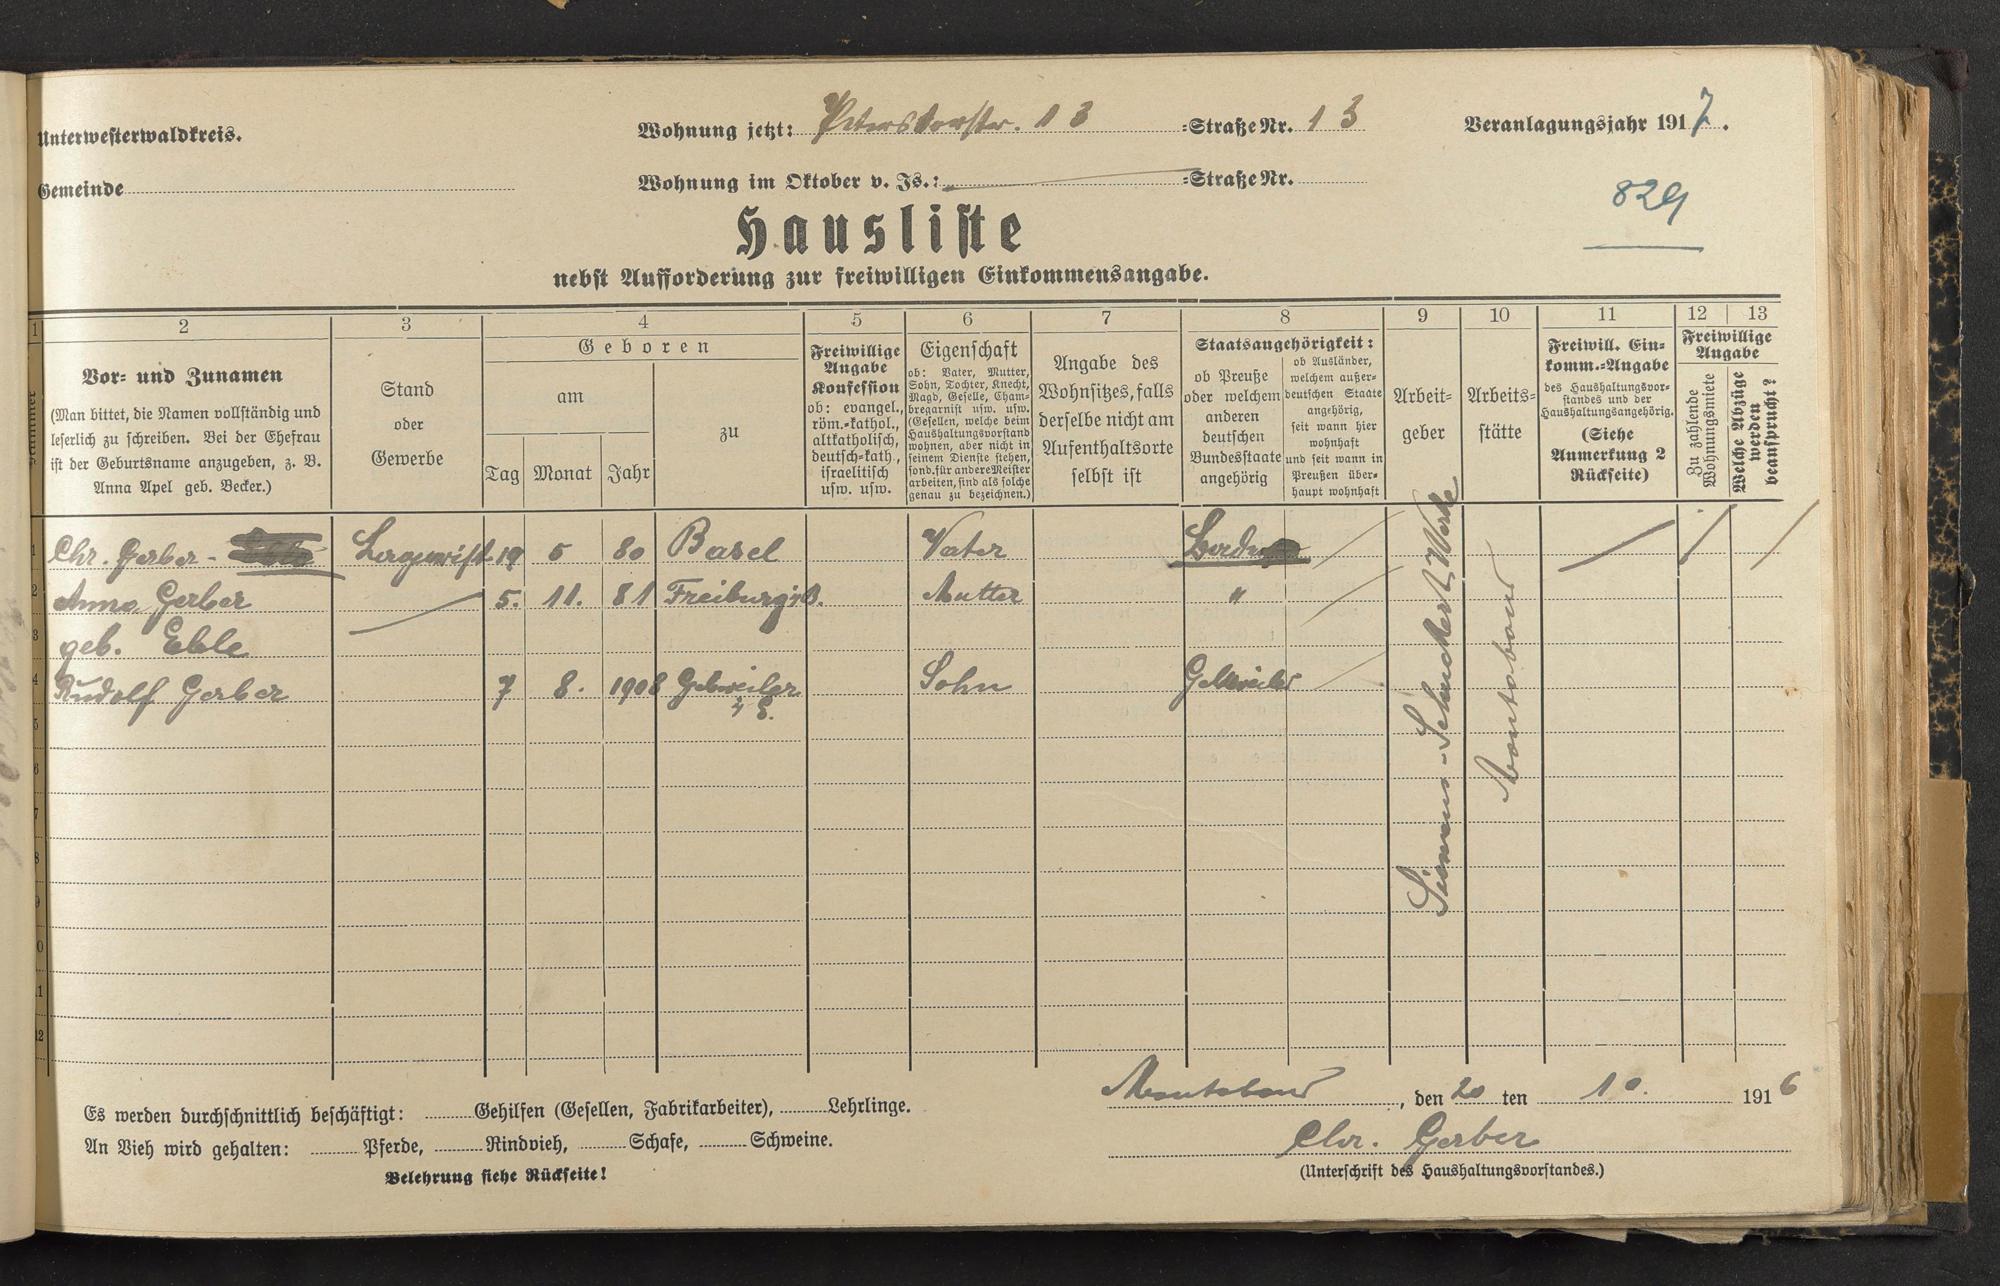 Unterwesterwaldkreis.
Wohnung jetzt: Petersdorfstr. 13 =Straße Nr. 13
Veranlagungsjahr 1917.
Gemeinde
Wohnung im Oktober v. Js.: =Straße Nr.
829
Hausliste
nebst Aufforderung zur freiwilligen Einkommensangabe.
1 2 3 4 5 6 7 8 9 10 11 12 13
Nummer
Vor- und Zunamen
(Man bittet, die Namen vollständig und
leserlich zu schreiben. Bei der Ehefrau
ist der Geburtsname anzugeben, z. B.
Anna Apel geb. Becker.)
Stand
oder
Gewerbe
Geboren
am
Tag Monat Jahr
zu
Freiwillige
Angabe
Konfession
ob: evangel.,
röm.-kathol.,
altkatholisch,
deutsch-kath.,
israelitisch
usw. usw.
Eigenschaft
ob: Vater, Mutter,
Sohn, Tochter, Knecht,
Magd, Geselle, Cham-
bregarnist usw. usw.
(Gesellen, welche beim
Haushaltungsvorstand
wohnen, aber nicht in
seinem Dienste stehen,
sond. für andere Meister
arbeiten, sind als solche
genau zu bezeichnen.)
Angabe des
Wohnsitzes, falls
derselbe nicht am
Aufenthaltsorte
selbst ist
Staatsangehörigkeit:
ob Preuße
oder welchem
anderen
deutschen
Bundesstaate
angehörig
ob Ausländer,
welchem außer-
deutschen Staate
angehörig,
seit wann hier
wohnhaft
und seit wann in
Preußen über-
haupt wohnhaft
Arbeit-
geber
Arbeits-
stätte
Freiwill. Ein-
komm.-Angabe
des Haushaltungsvor-
standes und der
Haushaltungsangehörig.
(Siehe
Anmerkung 2
Rückseite)
Freiwillige
Angabe
Zu zahlende
Wohnungsmiete
Welche Abzüge
werden
beansprucht?
1 Chr. Gerber - 19 5 80 Basel Vater
2 Anna Gerber 5. 11. 81 Freiburg i. B. Mutter "
3 geb. Eble
4 Rudolf Gerber 7 8. 1908 Gebweiler Sohn Gebweiler
i. E.
Siemens-Schuckert Werke
Montabaur
5
6
7
8
9
10
11
12
Es werden durchschnittlich beschäftigt: Gehilfen (Gesellen, Fabrikarbeiter), Lehrlinge.
An Vieh wird gehalten: Pferde, Rindvieh, Schafe, Schweine.
Belehrung siehe Rückseite!
Montabaur, den 20 ten 10. 1916
Chr. Gerber
(Unterschrift des Haushaltungsvorstandes.)